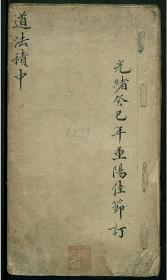 道法積中
光緒癸巳年重陽佳節訂
P239